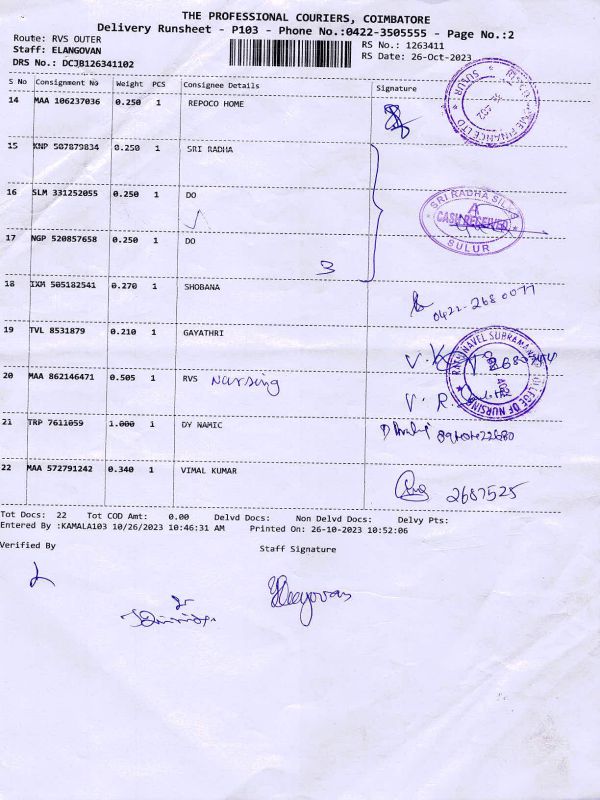 THE PROFESSIONAL COURIERS, COIMBATORE
Delivery Runsheet - P103 - Phone No.:0422-3505555 - Page No.:2
Route: RVS OUTER
RS No.: 1263411
Staff: ELANGOVAN
RS Date: 26-Oct-2023
DRS No.: DCJB126341102
S No Consignment No Weight PCS Consignee Details Signature
14 MAA 106237036 0.250 1 REPOCO HOME
15 KNP 507879834 0.250 1 SRI RADHA
16 SLM 331252055 0.250 1 DO
SRI RADHA SILK
CASH RECEIVED
SULUR
17 NGP 520857658 0.250 1 DO
3
18 IXM 505182541 0.270 1 SHOBANA
0422-268 0077
19 TVL 8531879 0.210 1 GAYATHRI
20 MAA 862146471 0.505 1 RVS Nursing
V. R.
COLLEGE OF NURSING
21 TRP 7611059 1.000 1 DY NAMIC
22 MAA 572791242 0.340 1 VIMAL KUMAR
2687525
Tot Docs: 22 Tot COD Amt: 0.00 Delvd Docs: Non Delvd Docs: Delvy Pts:
Entered By :KAMALA103 10/26/2023 10:46:31 AM Printed On: 26-10-2023 10:52:06
Verified By Staff Signature